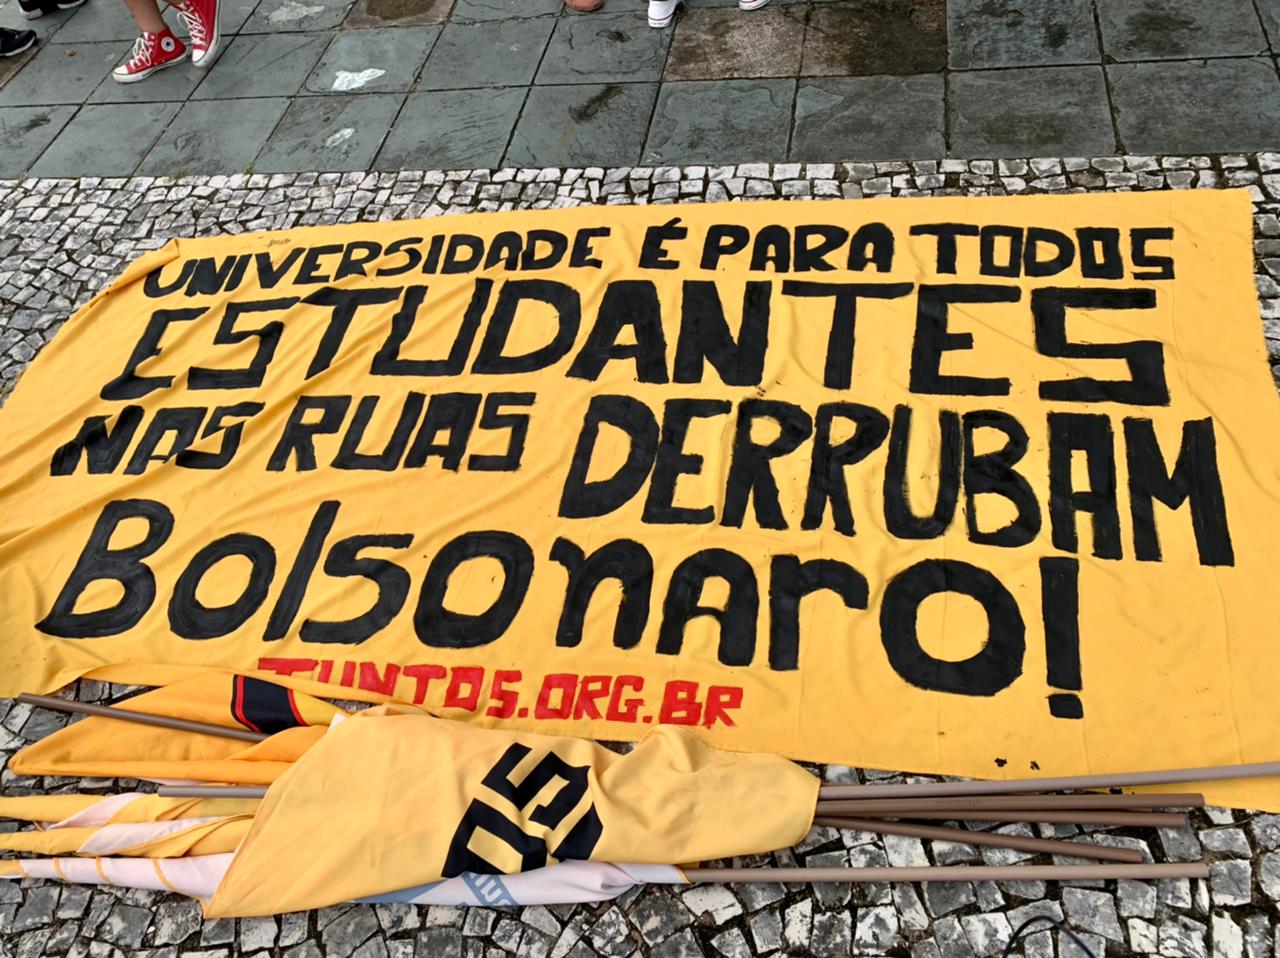 UNIVERSIDADE É PARA TODOS
ESTUDANTES
NAS RUAS DERRUBAM
Bolsonaro!
JUNTOS.ORG.BR